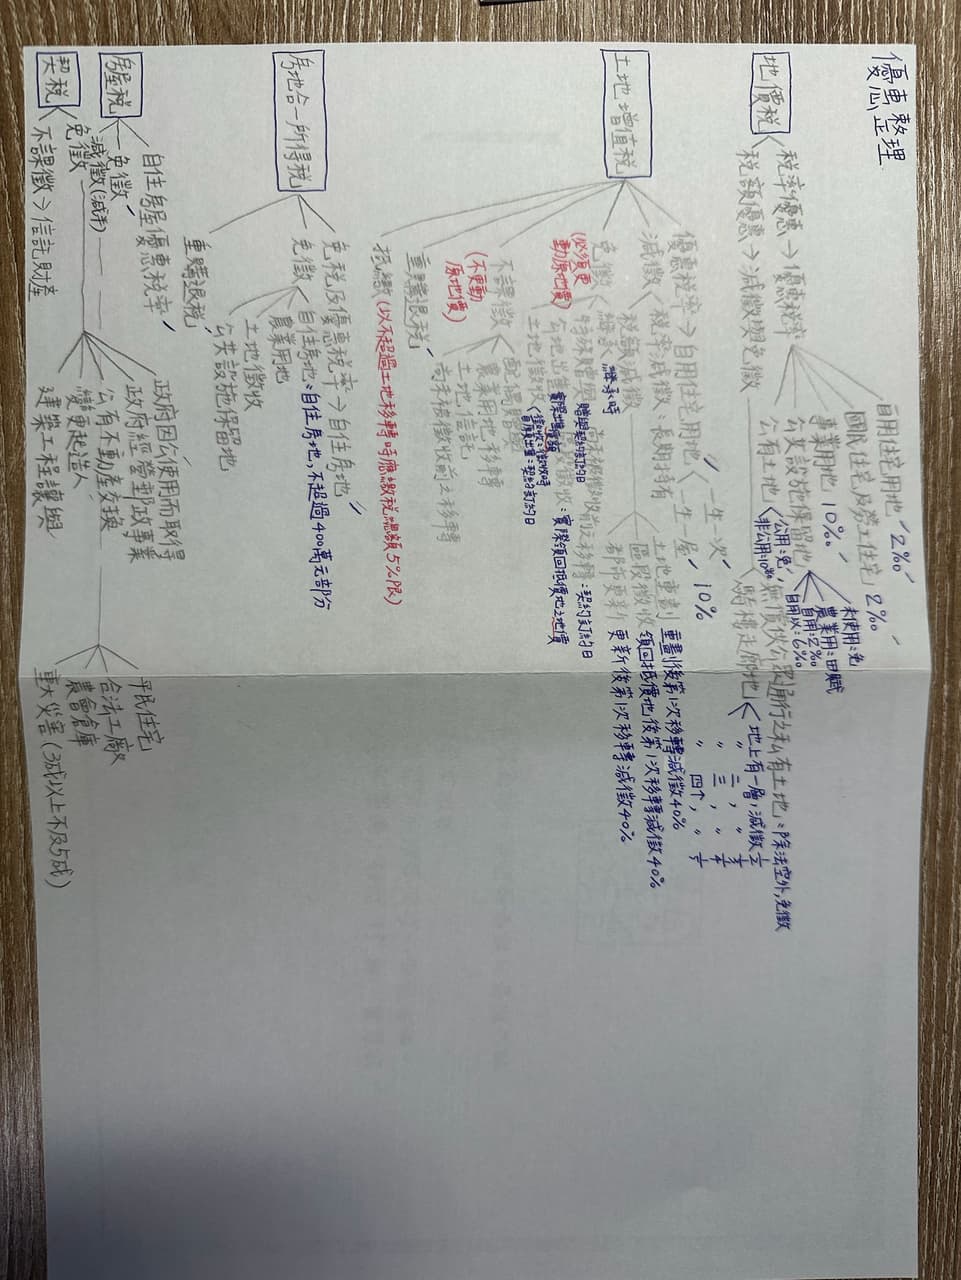 優惠整理
地價稅
稅率優惠 → 優惠稅率
自用住宅用地 2‰
國民住宅及勞工住宅 2‰
事業用地 10‰
公共設施保留地
未使用:免
農業用:田賦
自用:2‰
自用以:6‰
公有土地
公用:免
非公用:10‰
稅額優惠 → 減徵與免徵
無償供公眾通行之私有土地:除法空外,免徵
騎樓走廊地
地上有一層,減徵 1/2
〃 二 〃,〃 1/3
〃 三 〃,〃 1/4
〃 四个,〃 1/5
土地增值稅
優惠稅率 → 自用住宅用地
一生一次
一生一屋
10%
減徵
稅率減徵:長期持有
稅額減徵
土地重劃 重劃後第1次移轉減徵40%
區段徵收 領回抵價地後第1次移轉減徵40%
都市更新 更新後第1次移轉減徵40%
免徵
(必須更動原地價)
繼承 繼承時
特殊贈與 贈與契約訂約日
公地出售
土地徵收
不課徵
(不更動原地價)
配偶贈與
農業用地移轉
土地信託
尚未被徵收前之移轉
重購退稅
抵繳(以不超過土地移轉時應繳稅總額5%限)
房地合一所得稅
免稅及優惠稅率 → 自住房地
免徵
自住房地:自住房地,不超過400萬元部分
農業用地
土地徵收
公共設施保留地
重購退稅
房屋稅
自住房屋優惠稅率
免徵
減徵(減半)
平民住宅
合法工廠
農會倉庫
重大災害(3成以上不及5成)
契稅
免徵
政府因公使用而取得
政府經營郵政事業
公有不動產交換
變更起造人
建築工程讓與
不課徵 > 信託財產